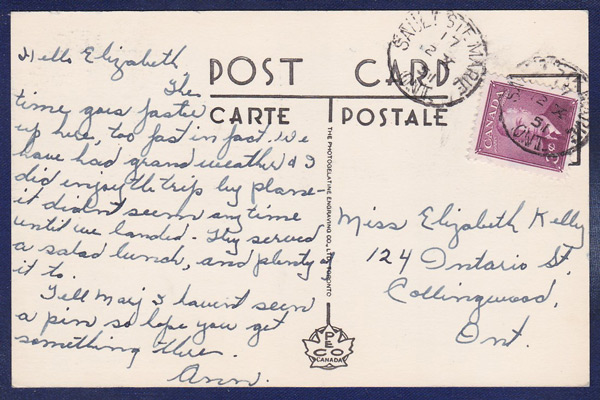 Hello Elizabeth
The
time goes faster
up here, too fast in fact. We
have had grand weather & I
did enjoy the trip by plane -
it didn't seem any time
until we landed. They served
a salad lunch, and plenty of
it to.
Tell Marj I havent seen
a pin so hope you get
something there.
Ann.
POST CARD
CARTE POSTALE
THE PHOTOGELATINE ENGRAVING CO., LTD. TORONTO
PECO
CANADA
SAULT STE. MARIE
17
12 X
51
ONT.
CANADA
Miss Elizabeth Kelly
124 Ontario St.
Collingwood,
Ont.